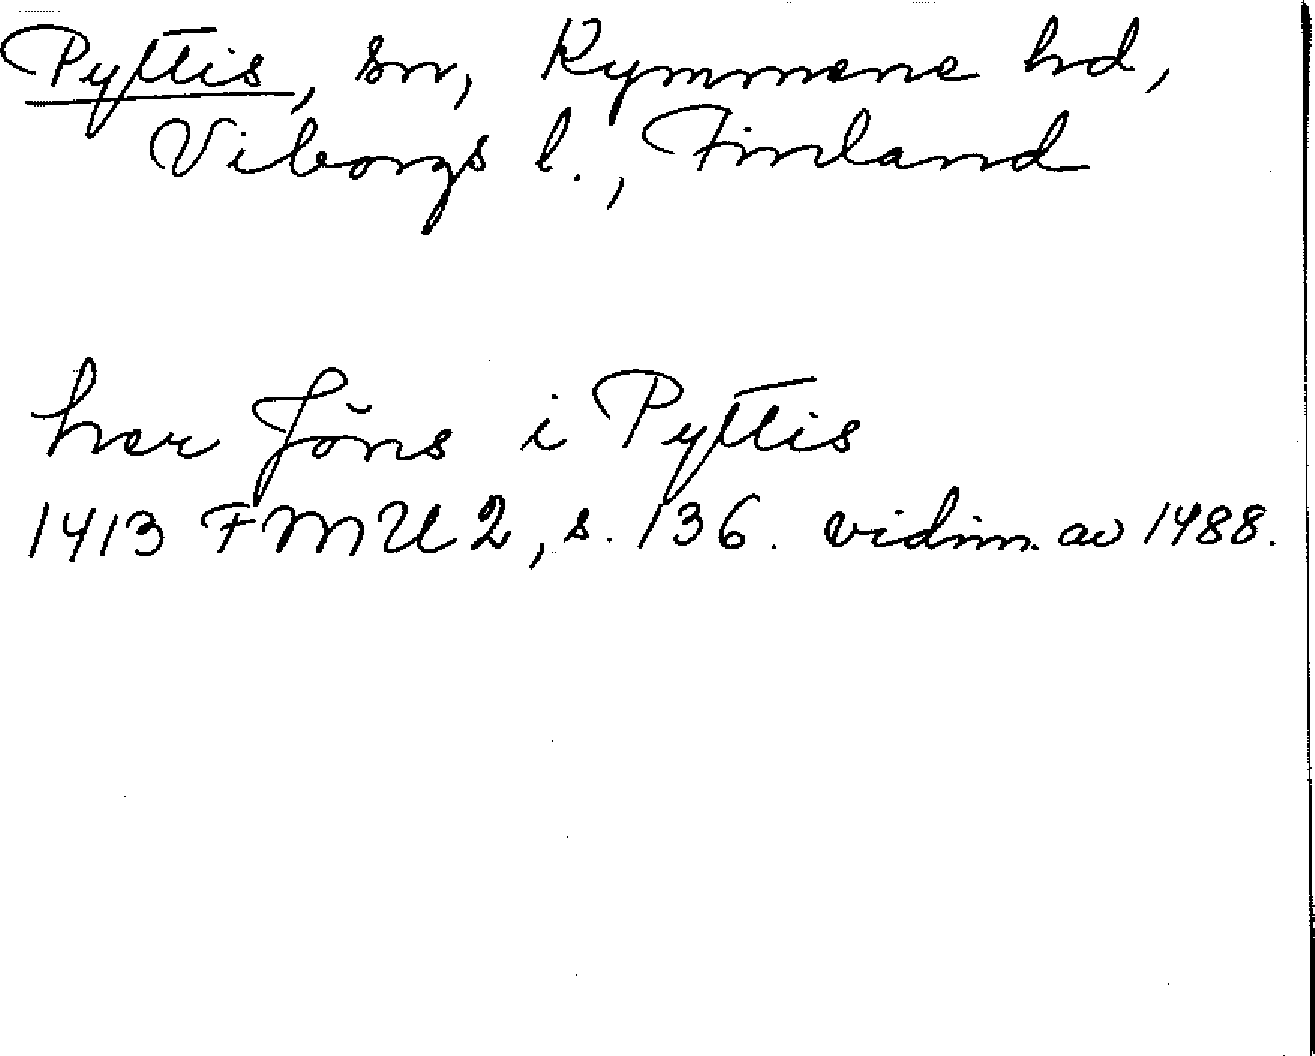 Pyttis, sn, Kymmene hd,
Viborgs l., Finland
her Jöns i Pyttis
1413 FMU 2, s. 136. vidim. av 1488.